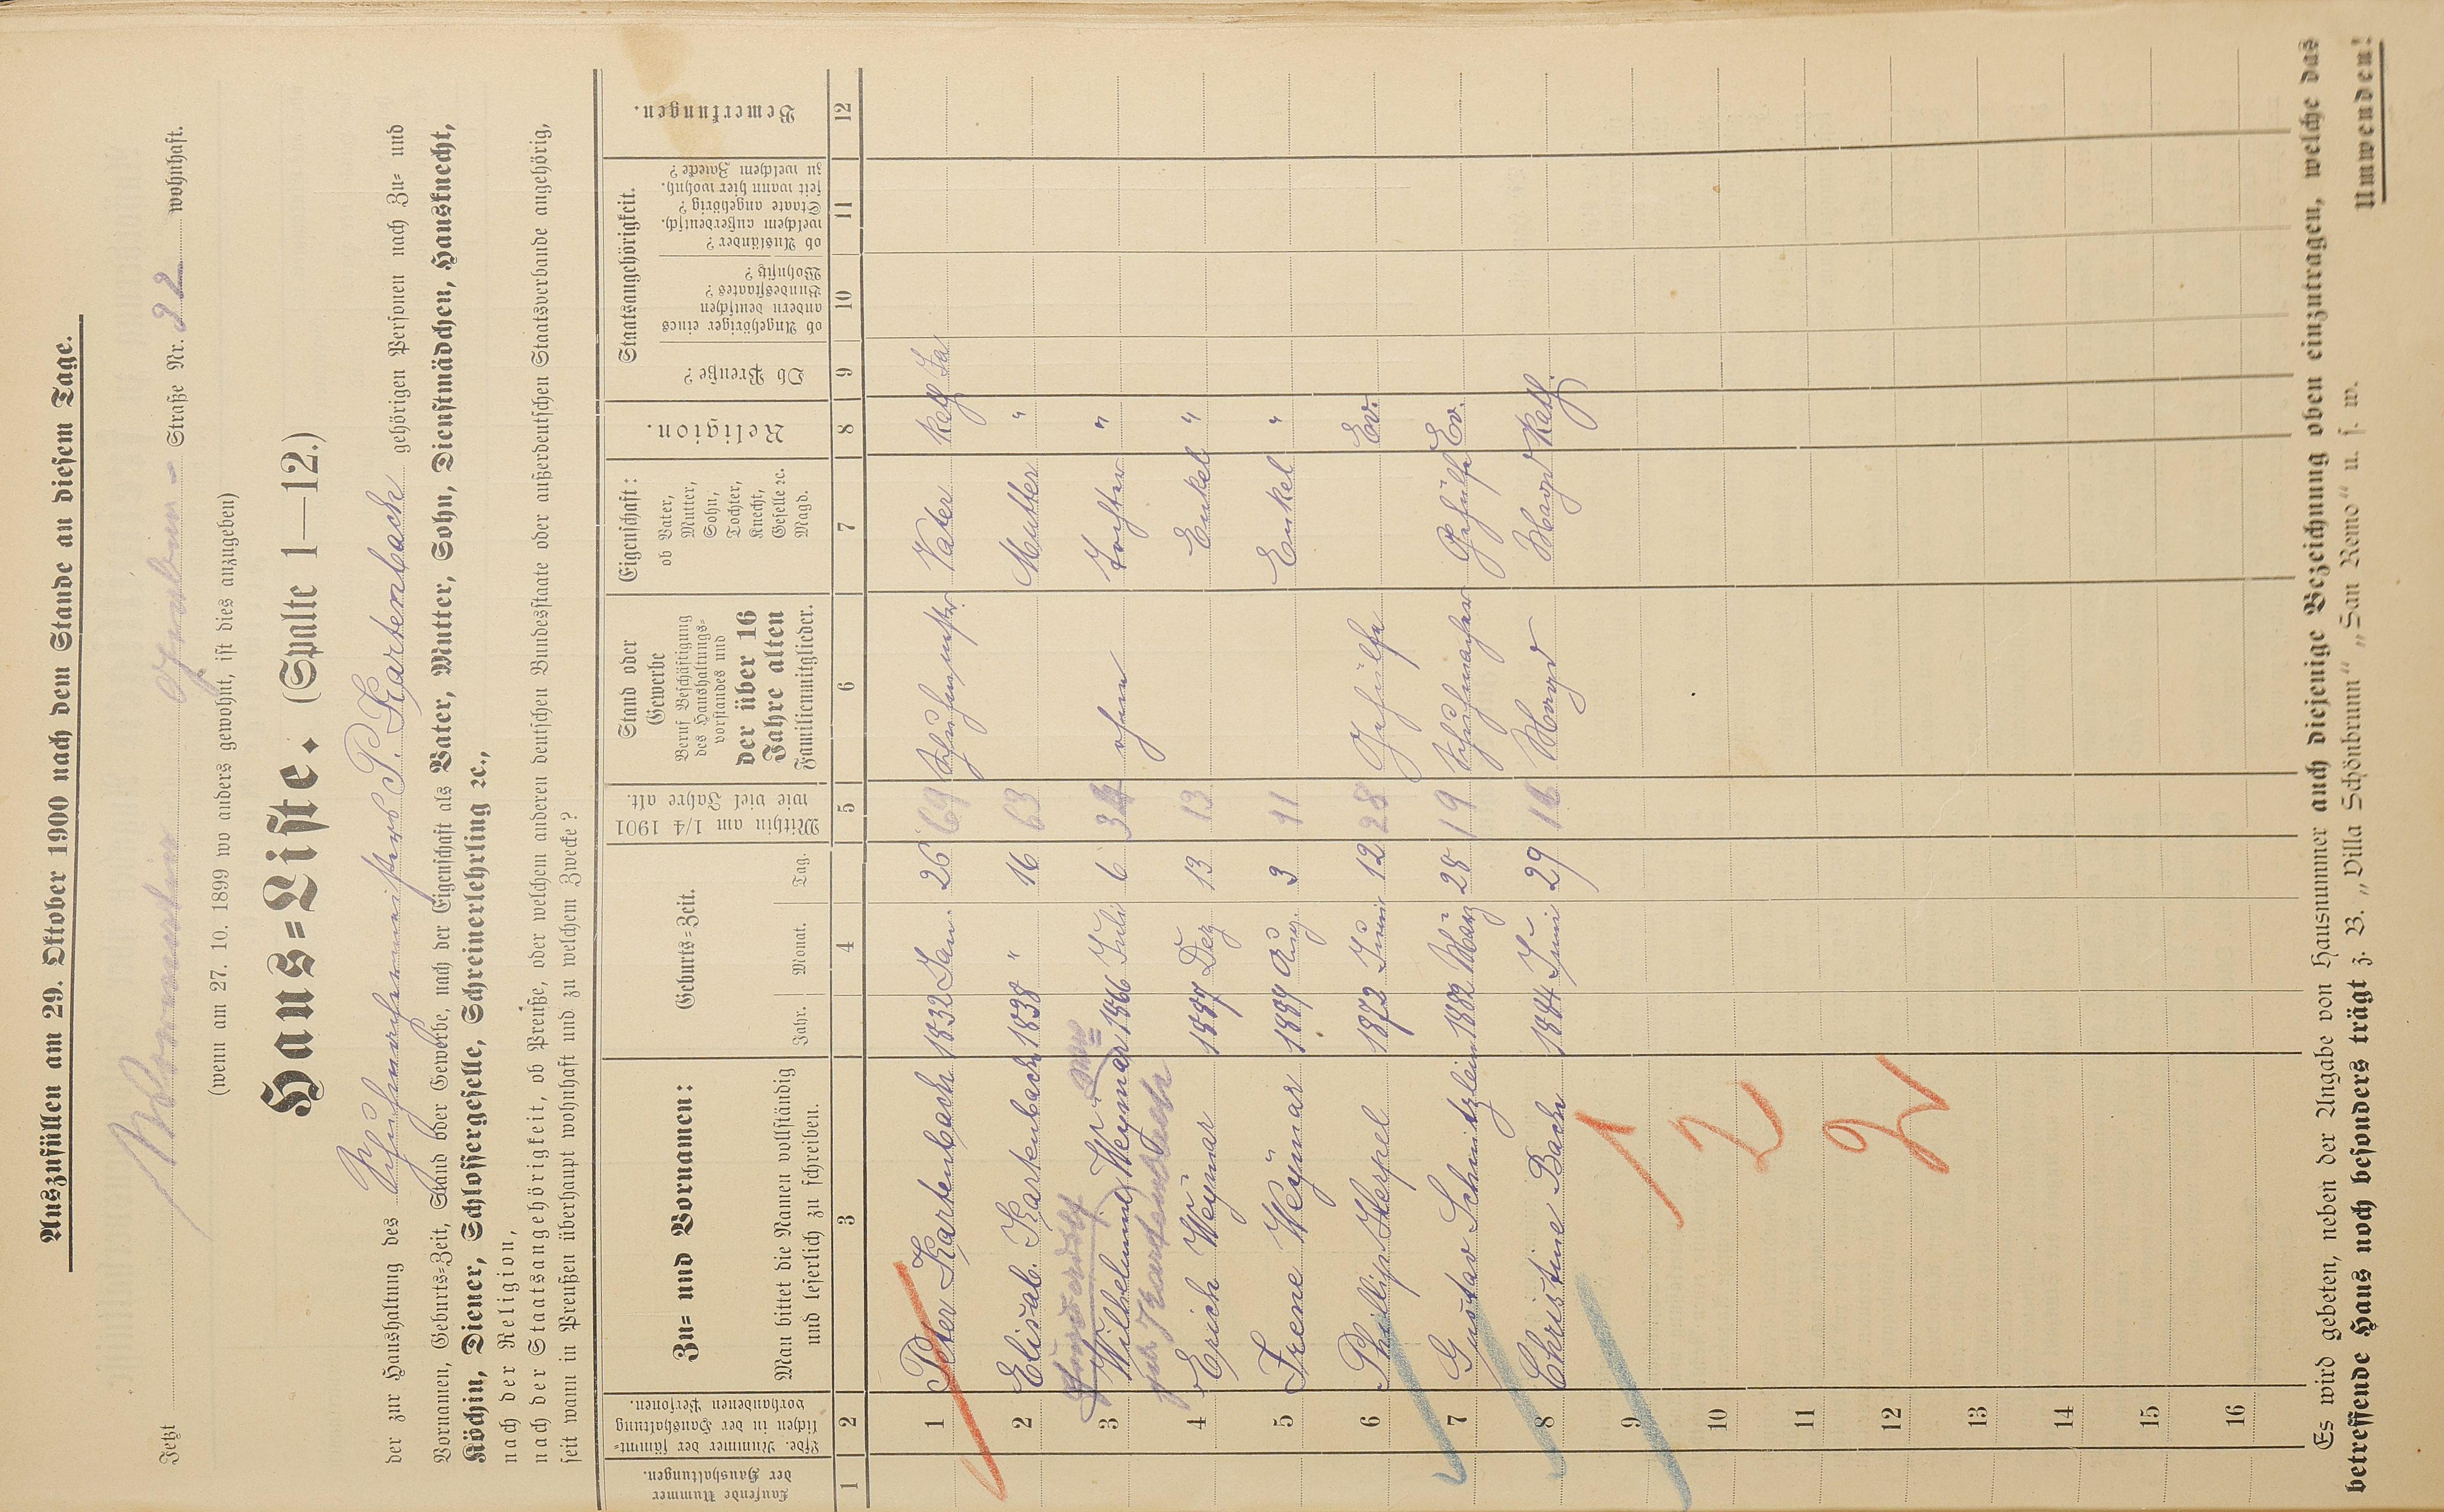 Auszufüllen am 29. Oktober 1900 nach dem Stande an diesem Tage.
Jetzt Straße Nr. 22 wohnhaft.
(wenn am 27. 10. 1899 wo anders gewohnt, ist dies anzugeben)
Haus=Liste. (Spalte 1—12.)
der zur Haushaltung des Schuhmachermeisters P. Kartenbach gehörigen Personen nach Zu= und
Vornamen, Geburts=Zeit, Stand oder Gewerbe, nach der Eigenschaft als Vater, Mutter, Sohn, Dienstmädchen, Hausknecht,
Köchin, Diener, Schlossergeselle, Schreinerlehrling ꝛc.,
nach der Religion,
nach der Staatsangehörigkeit, ob Preuße, oder welchem anderen deutschen Bundesstaate oder außerdeutschen Staatsverbande angehörig,
seit wann in Preußen überhaupt wohnhaft und zu welchem Zwecke?
Laufende Nummer der Haushaltungen.
Lfde. Nummer der sämmt= lichen in der Haushaltung vorhandenen Personen.
Zu= und Vornamen:
Man bittet die Namen vollständig und leserlich zu schreiben.
Geburts=Zeit.
Jahr. Monat. Tag.
Mithin am 1/4 1901 wie viel Jahre alt.
Stand oder Gewerbe
Beruf Beschäftigung des Haushaltungs= vorstandes und
der über 16 Jahre alten
Familienmitglieder.
Eigenschaft:
ob Vater, Mutter, Sohn, Tochter, Knecht, Geselle ꝛc. Magd.
Religion.
Staatsangehörigkeit.
Ob Preuße?
ob Angehöriger eines andern deutschen Bundesstaates? Wohnsitz?
ob Ausländer? welchem außerdeutsch. Staate angehörig? seit wann hier wohnh. zu welchem Zwecke?
Bemerkungen.
1 2 3 4 5 6 7 8 9 10 11 12
1 Peter Kartenbach 1832 Jan. 26 69 Schuhmstr. Vater Kath Ja
2 Elisab. Kartenbach 1838 " 16 63 Mutter "
3 Wilhelmine Weymar 1866 Juli 6 ohne Tochter "
4 Erich Weymar 1887 Dez 13 13 Enkel "
5 Irene Weymar 1889 Aug. 3 11 Enkel "
6 Phillip Herpel 1872 Juni 12 28 Gehülfe Ev.
7 Gustav Schmitzlein 1882 März 28 19 Schuhmacher Gehülfe Ev.
8 Christine Bach 1884 Juni 29 16 Magd Magd Kath.
9
10
11
12
13
14
15
16
1
2
2
Es wird gebeten, neben der Angabe von Hausnummer auch diejenige Bezeichnung oben einzutragen, welche das
betreffende Haus noch besonders trägt z. B. „Villa Schönbrunn" „San Remo" u. s. w.
Umwenden!